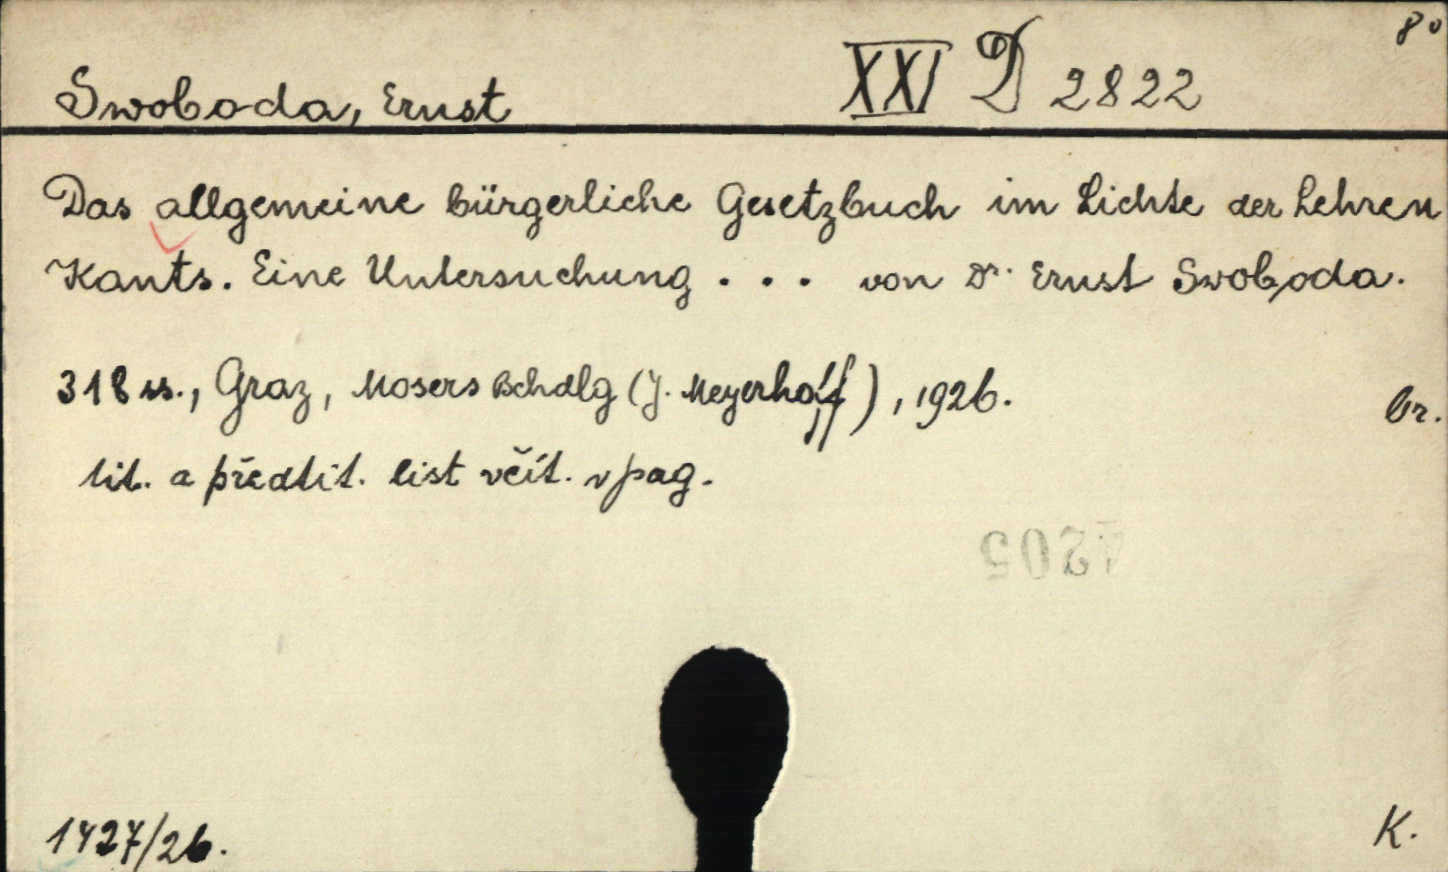 8°
Swoboda, Ernst XXI D 2822
Das allgemeine bürgerliche Gesetzbuch im Lichte der Lehren
Kants. Eine Untersuchung . . . von Dr. Ernst Swoboda.
318 ss., Graz, Mosers Bchdlg (J. Meyerhoff), 1926.
br.
tit. a předtit. list včít. v pag.
4205
1427/26.
K.